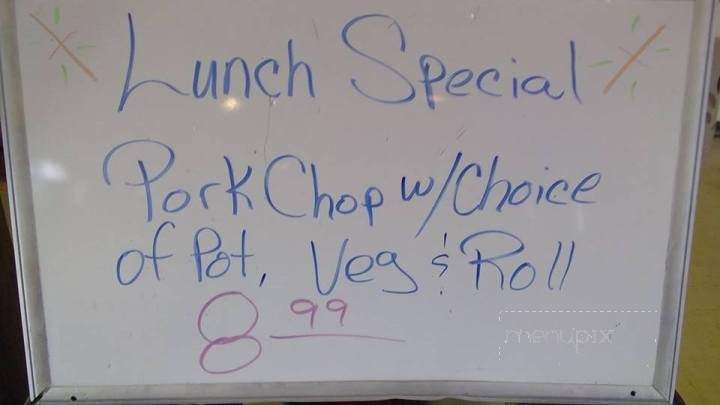 Lunch Special
Pork Chop w/Choice
of Pot, Veg & Roll
8 99
menupix